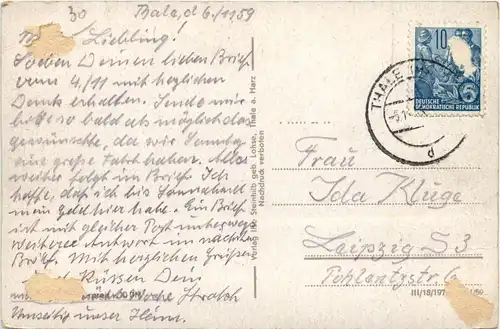 30 Thale, d 6./11 59
Liebling!
Soeben Deinen lieben Brief
vom 4/11 mit herzlichen
Dank erhalten. Sende mir
bitte so bald als möglich das
gewünschte, da wir Sonntag
eine große Fahrt haben. Alles
weitere folgt im Brief. Ich
hoffe, daß ich bis Sonnabend
mein Geld hier habe. Ein Brief
ist mit gleicher Post unterwegs
weitere Antwort im nächsten
Brief. Mit herzlichen Grüßen
und Küssen Dein
Umseitig unser Heim.
Verlag Ilse Steinbiß geb. Lohse, Thale a. Harz
Nachdruck verboten
10
DEUTSCHE
DEMOKRATISCHE REPUBLIK
THALE
d
Frau
Ida Kluge
Leipzig S3
Pohlentzstr 6
III/18/197